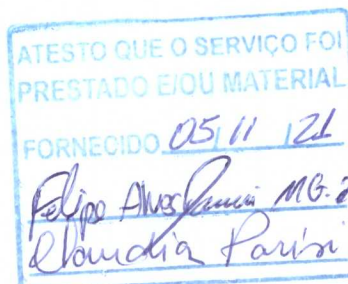 ATESTO QUE O SERVIÇO FOI
PRESTADO E/OU MATERIAL
FORNECIDO 05/11/21
Felipe Alves MG.
Claudia Parisi